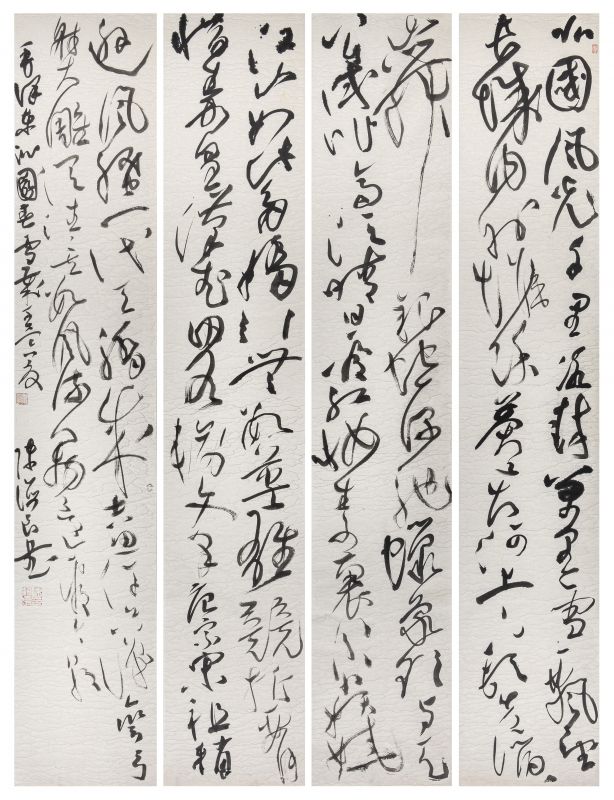 北國風光千里冰封萬里雪飄望
長城内外惟餘莽々大河上下頓失滔々
山舞銀蛇原馳蠟象欲與天
公試比高須晴日看紅妝素裹分外妖嬈
江山如此多嬌引無數英雄競折腰
惜秦皇漢武略輸文采唐宗宋祖稍
遜風騷一代天驕成吉思汗只識彎弓
射大雕俱往矣數風流人物還看今朝
毛澤東沁園春雪 夏 陳海良書